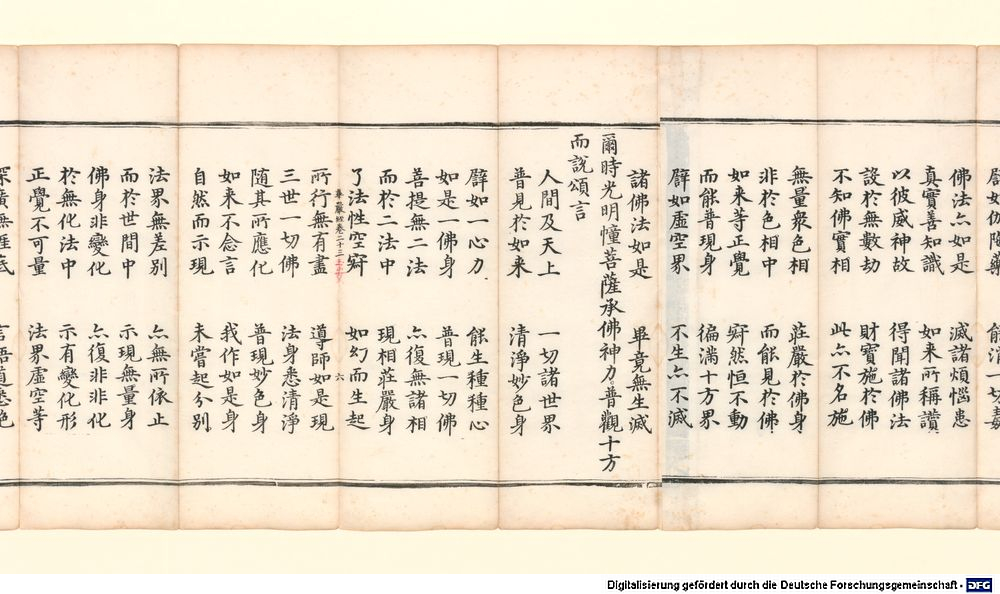 佛法亦如是　滅諸煩惱患
真實善知識　如來所稱讚
以彼威神故　得聞諸佛法
設於無數劫　財寶施於佛
不知佛實相　此亦不名施
無量衆色相　莊嚴於佛身
非於色相中　而能見於佛
如来等正覺　寂然恒不動
而能普現身　徧滿十方界
譬如虛空界　不生亦不滅
諸佛法如是　畢竟無生滅
爾時光明幢菩薩承佛神力普觀十方
而說頌言
人間及天上　一切諸世界
普見於如来　清淨妙色身
譬如一心力　能生種種心
如是一佛身　普現一切佛
菩提無二法　亦復無諸相
而於二法中　現相莊嚴身
了法性空寂　如幻而生起
華嚴經卷二十三　六
所行無有盡　導師如是現
三世一切佛　法身悉清淨
隨其所應化　普現妙色身
如来不念言　我作如是身
自然而示現　未嘗起分別
法界無差別　亦無所依止
而於世間中　示現無量身
佛身非變化　亦復非非化
於無化法中　示有變化形
正覺不可量　法界虛空等
Digitalisierung gefördert durch die Deutsche Forschungsgemeinschaft - DFG